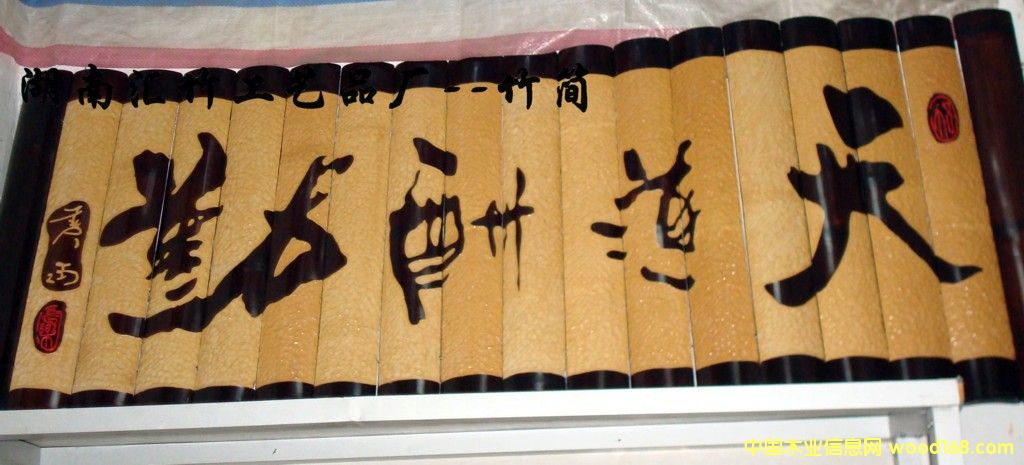 湖南汇竹工艺品厂--竹简
天道酬勤
中国木业信息网 wood168.com